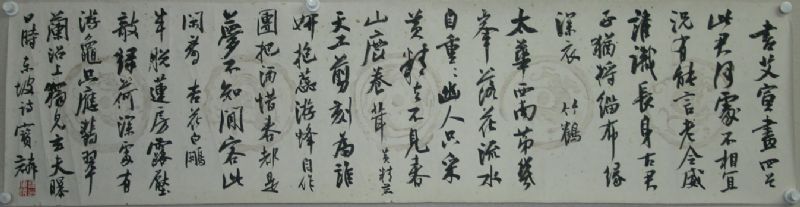 書艾宣畫四首
此君何處不相宜
况有能言老令威
誰識長身古君
子猶將緇布緣
深衣 竹鶴
太華西南第幾
峯落花流水
自重々幽人只采
黄精去不見春
山鹿養茸 黄精鹿
天工剪刻為誰
妍抱蕊游蜂自作
團把酒惜春都是
夢不如閒客此
閒看 杏花白鷴
半脱蓮房露壓
敧綠荷深處有
游龜只應翡翠
蘭苕上獨見玄夫曝
日時東坡詩寶麟